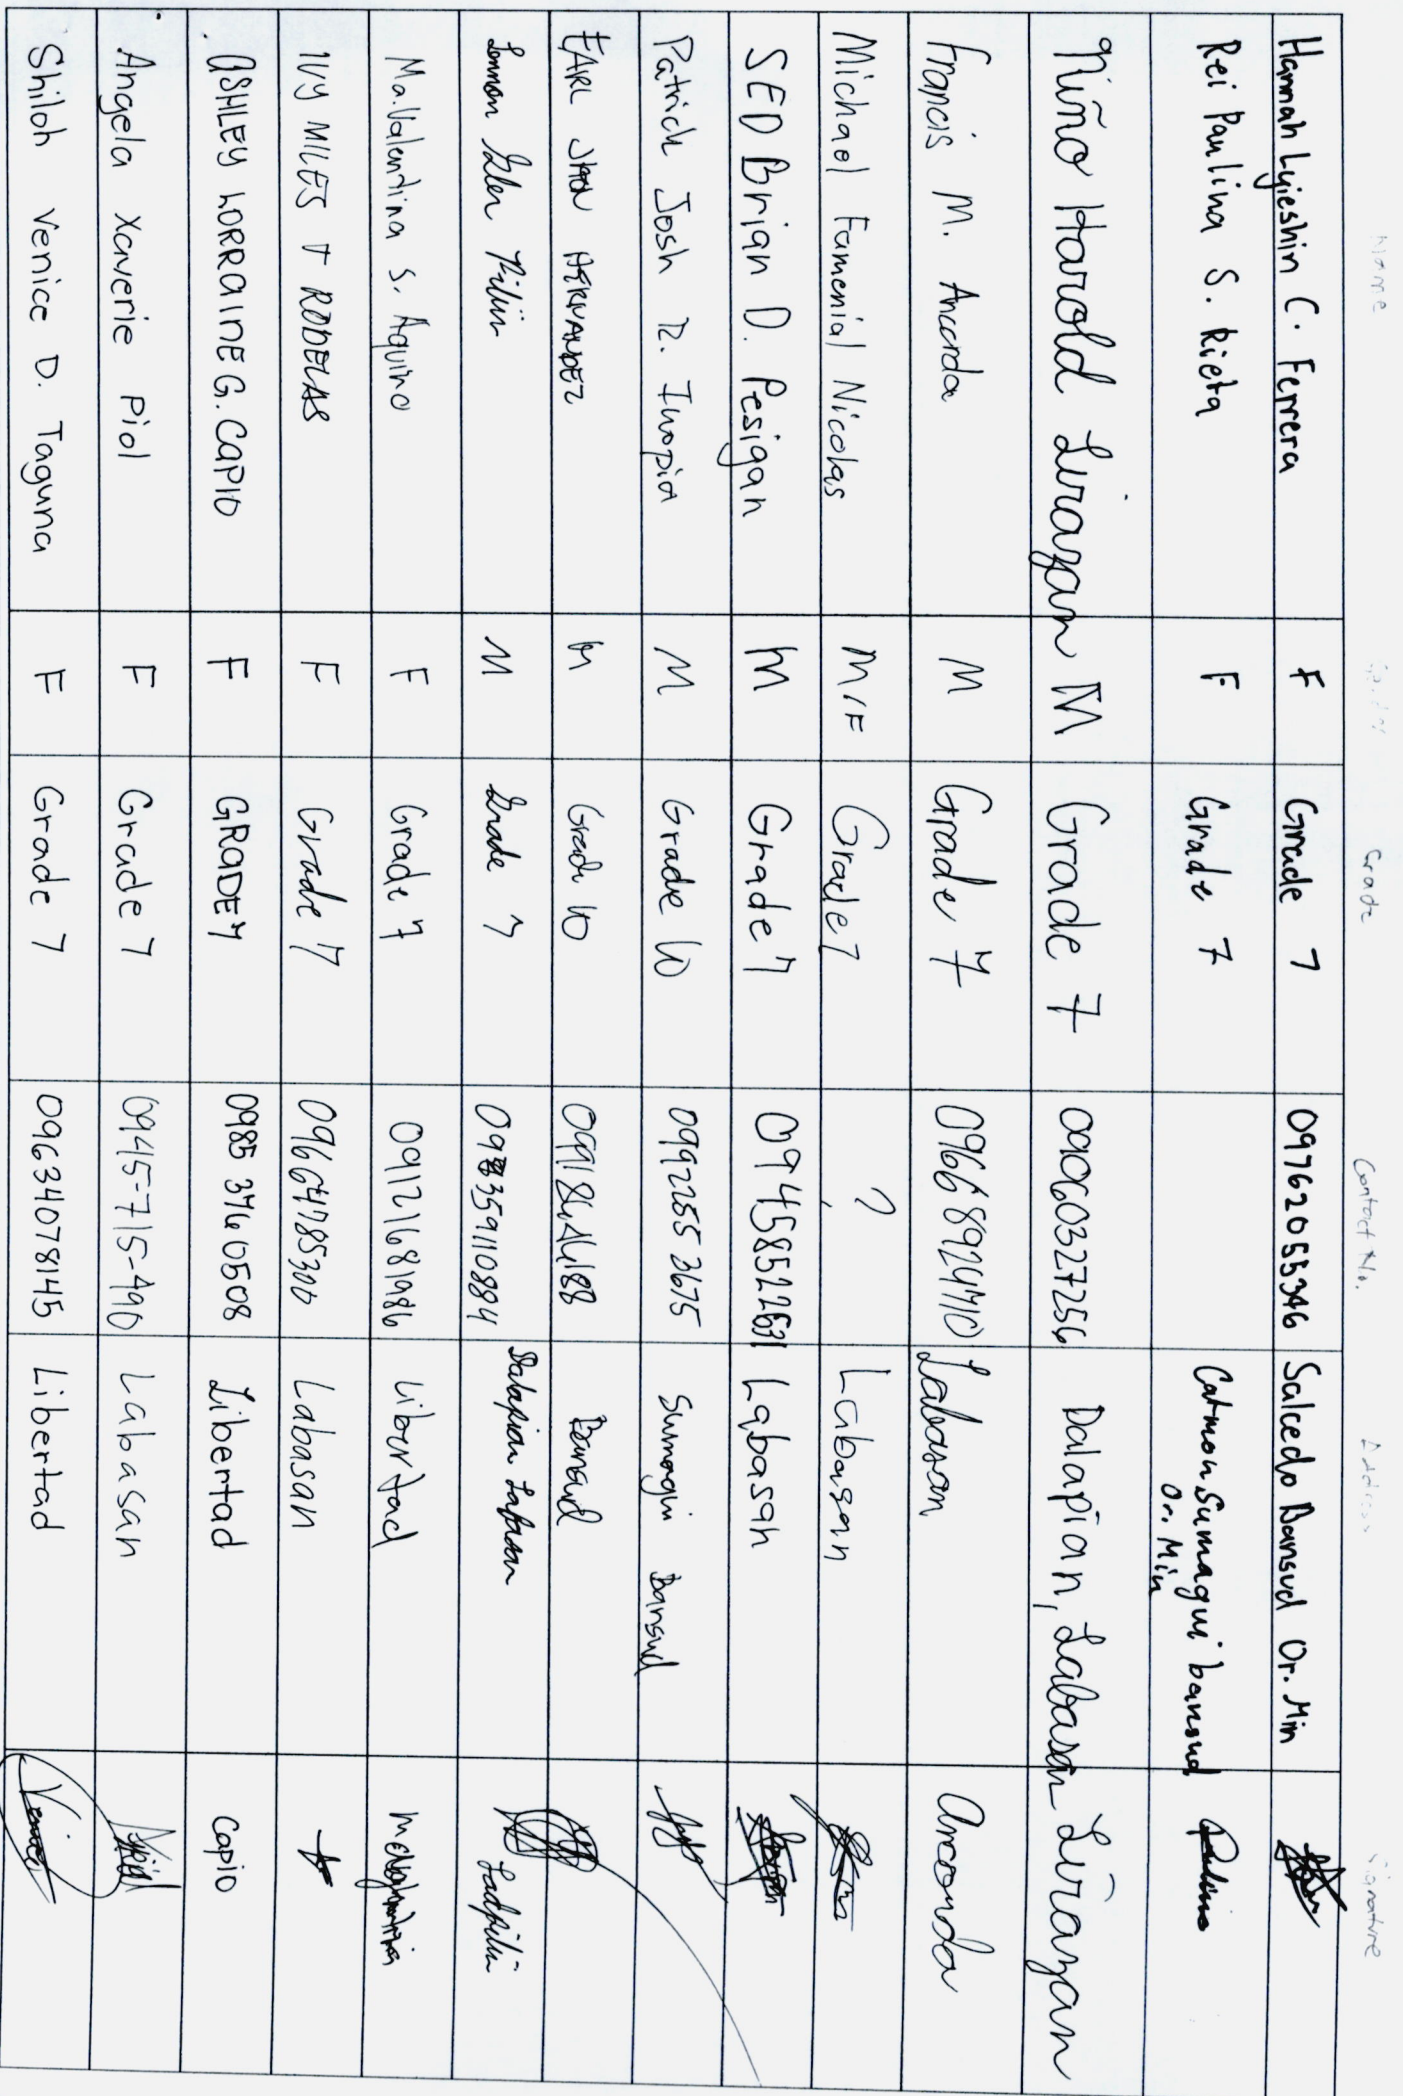 Name Grade Contact No. Address Signature
Hannah Lyieshin C. Ferrera F Grade 7 09762055346 Salcedo Bansud Or. Min
Rei Paulina S. Rieta F Grade 7 Catmon, Sumagui bansud Paulina
Or. Min
Niño Harold Lirazan M Grade 7 09060327256 Dalapian, Labasan Lirazan
Francis M. M Grade 7 Labasan
Michael Famenial Nicolas M/F Grade 7 ? Labasan
SED Brian D. Pesigan M Grade 7 09458522631 Labasan
Patrick Josh R. M Grade 10 09922553675 Sumagui Bansud
EARL HERNANDEZ M Grade 10 Bansud
M Grade 7 Dalapian Labasan
Ma. Valentina S. Aquino F Grade 7 09121681986 Libertad
IVY MILES T RODELAS F Grade 7 09664785300 Labasan
ASHLEY LORRAINE G. CAPIO F GRADE 7 0985 3760508 Libertad Capio
Angela Xaverie Piol F Grade 7 0945-715-490 Labasan
Shiloh Venice D. Taguna F Grade 7 09634078145 Libertad Venice